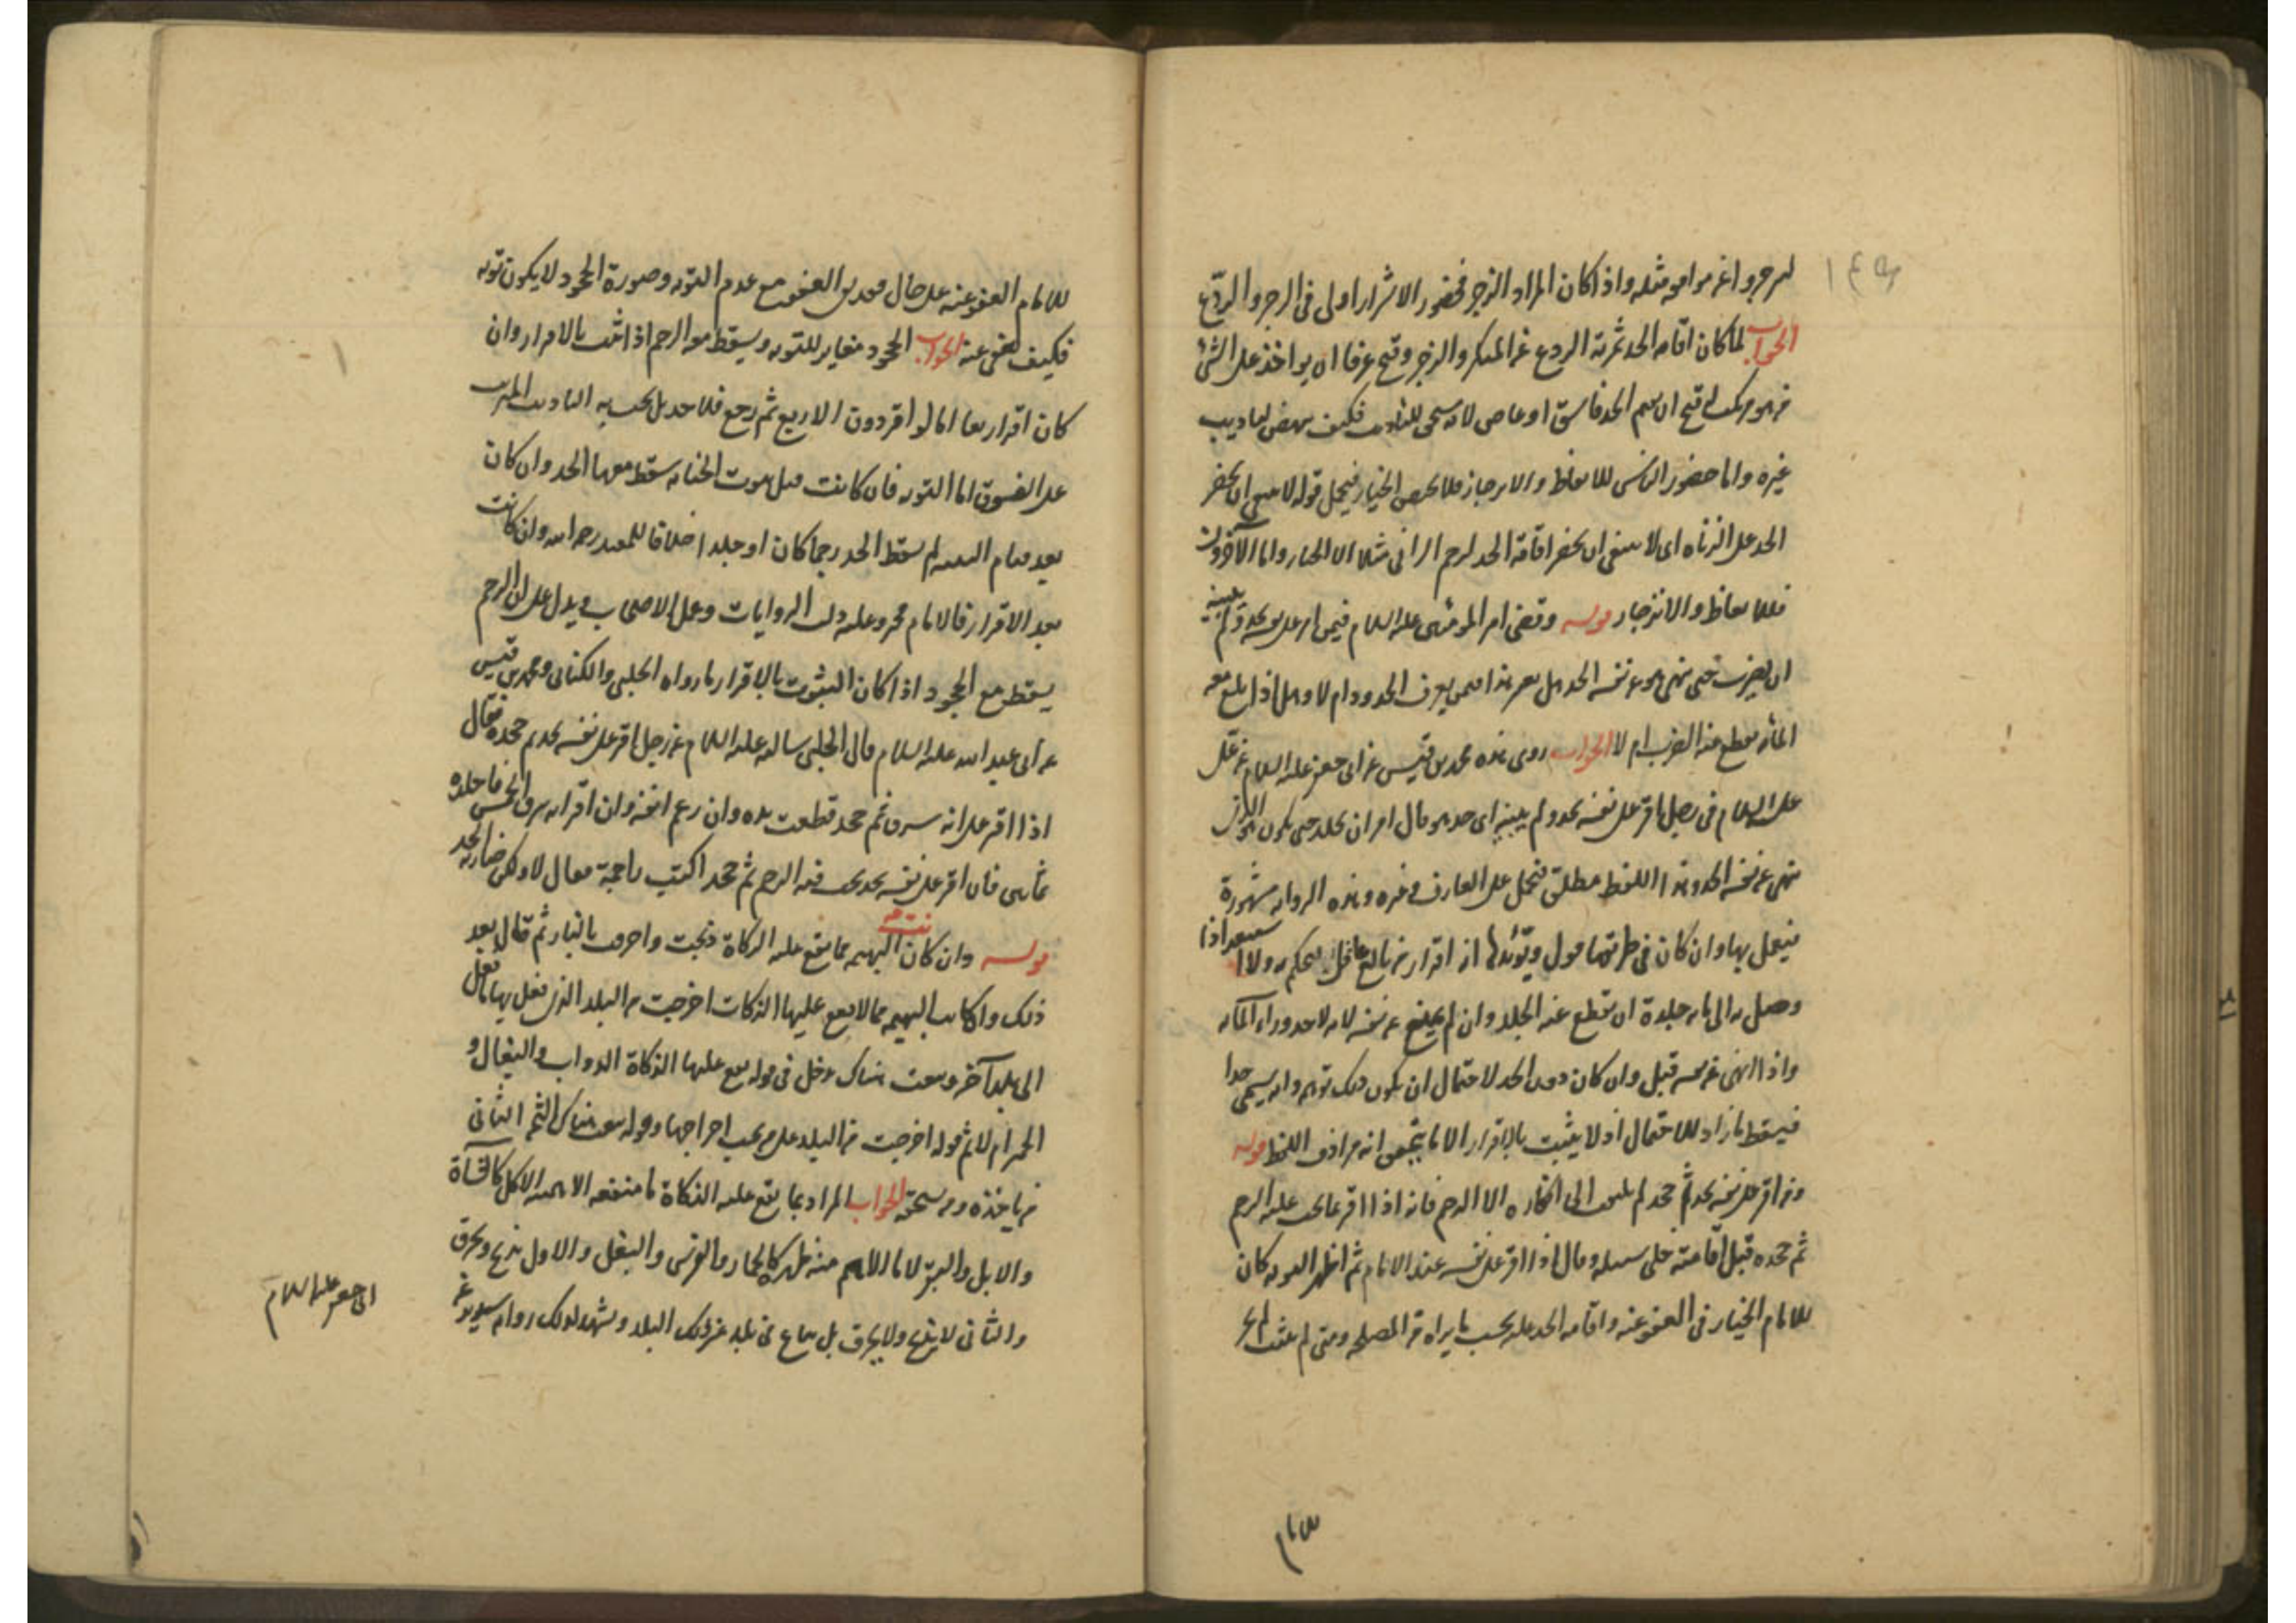 لىرجروا عن مواقعه مثله واذا كان المراد الزجر فحضور الاشرار اولى فى الزجر والردع
الجواب لما كان اقامه الحد ثمرته الردع عن المنكر والزجر وقبح عرفا ان يواخذ على الشئ
من هو مرتكب له قبح ان يقيم الحد فاسق او عاص لانه يستحق للتأديب فكيف ينهض لتاديب
غيره واما حضور الناس للاتعاظ والانزجار فلا يختص الخيار فيحمل قوله لا ينبغى ان يحضر
الحد على الزناه اى لا ينبغى ان يحضر اقامة الحد لرجم الزانى مثلا الا الخيار واما الآخرون
فللاتعاظ والانزجار قوله وقضى امير المؤمنين عليه السلام فيمن اقر على نفسه بحد ولم يبينه
ان يضرب حتى ينهى هو عن نفسه الحد هل يعم هذا من يعرف الحدود ام لا وهل اذا بلغ معه
المائه يقطع عنه الضرب ام لا الجواب روى هذه محمد بن قيس عن ابى جعفر عليه السلام عن على
عليه السلام فى رجل اقر على نفسه بحد ولم يبينه اى حد هو قال امر ان يجلد حتى يكون هو الذى
ينهى عن نفسه الحد وهذا اللفظ مطلق فيحمل على العارف وغيره وهذه الروايه مشهورة
فيعمل بها وان كان فى طريقها قول ويؤيدها انه اقرار من بالغ عاقل فيحكم به ولا استبعد اذا
وصل به الى مايه جلدة ان يقطع عنه الجلد وان لم يمنع عن نفسه لانه لا حد وراء المائه
واذا انهى عن نفسه قبل وان كان دون الحد لاحتمال ان يكون ذلك توبه وانه يسمى حدا
فيسقط ما زاد للاحتمال اذ لا يثبت بالاقرار الا ما يتيقن انه مراد من اللفظ قوله
ومن اقر على نفسه بحد ثم جحد لم يلتفت الى انكاره الا الرجم فانه اذا اقر بما يجب عليه الرجم
ثم جحده قبل اقامته خلى سبيله وقال اذا اقر على نفسه عند الامام ثم اظهر التوبه كان
للامام الخيار فى العفو عنه واقامه الحد عليه بحسب ما يراه من المصلحه ومتى لم يتب لم يجز
للامام
للامام العفو عنه على حال العفو مع عدم التوبه وصورة الجحود لا يكون توبه
فكيف يعفى عنه الجواب الجحود مغاير للتوبه ويسقط معه الرجم اذا اثبت بالاقرار وان
كان اقرار بعا اما لو اقر دون الاربع ثم رجع فلا حد بل يجب به التاديب المترتب
على الفسوق اما التوبه فان كانت قبل ثبوت الجنايه سقط معها الحد وان كان
بعد قيام البينه لم يسقط الحد رجما كان او جلدا خلافا للمفيد رحمه الله وان كانت
بعد الاقرار فالامام مخير وعليه دلت الروايات وعمل الاصحاب ويدل على ان الرجم
يسقط مع الجحود اذا كان الثبوت بالاقرار ما رواه الحلبى والكنانى ومحمد بن قيس
عن ابى عبد الله عليه السلام قال الحلبى سالته عليه السلام عن رجل اقر على نفسه بحد ثم جحده فقال
اذا اقر على انه سرق ثم جحد قطعت يده وان رغم انفه وان اقر انه شرب الخمر فاجلده
ثمانين فان اقر على نفسه بحد يجب فيه الرجم ثم جحد اكنت راجمه فقال لا ولكن ضاربه الحد
قوله وان كان البهيمه مما يقع عليه الزكاة ذبحت واحرقت بالنار ثم قال بعد
ذلك وان كانت البهيمه مما لا يقع عليها الزكات اخرجت من البلد الذى فعل بها ما فعل
الى بلد آخر وبيعت هناك دخل فى قوله يقع عليها الذكاة الدواب والبغال و
الحمر ام لا ثم قوله اخرجت من البلد على من يجب اخراجها وقوله بيعت هناك الثمن الثانى
من ياخذه ومن يستحقه الجواب المراد بما يقع عليه الذكاة ما منفعه الاهم منه الاكل كالشاة
والابل والبقر لا ما الاهم منه ظهره كالحمار والفرس والبغل والاول يذبح ويحرق
والثانى لا يذبح ولا يحرق بل يباع فى بلد غير ذلك البلد ويشهد لذلك روايه سدير عن
ابى جعفر عليه السلام